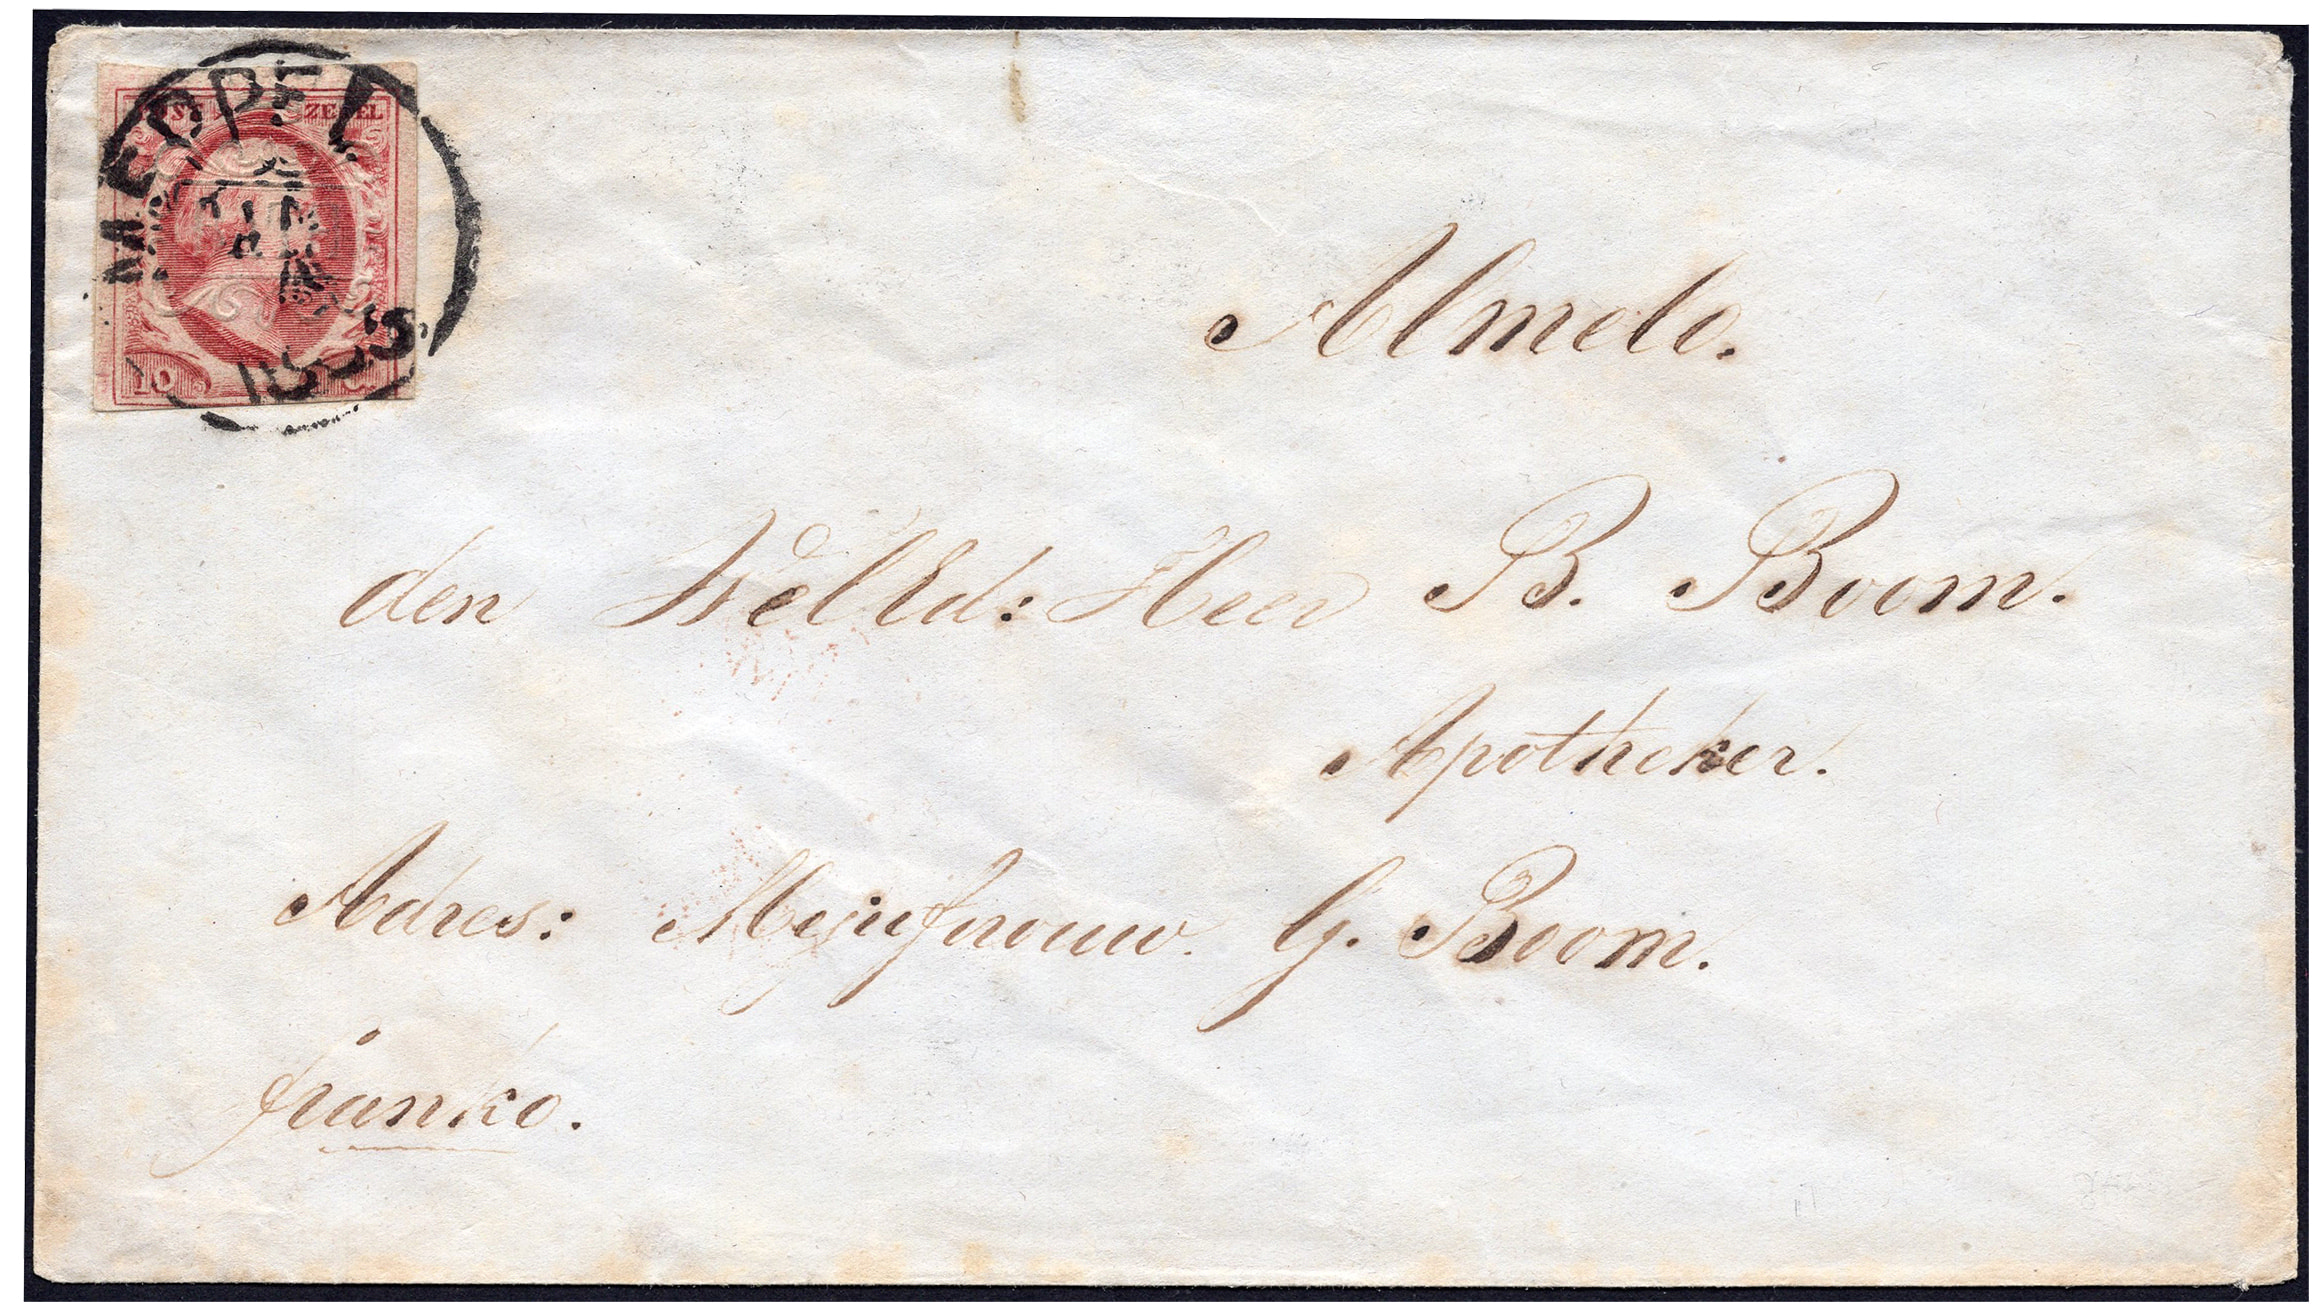 MEPPEL
POST ZEGEL
10 C.
1855.
Almelo.
den WelEd: Heer B. Boom.
Apotheker.
Adres: Mejufvrouw. G. Boom.
franko.